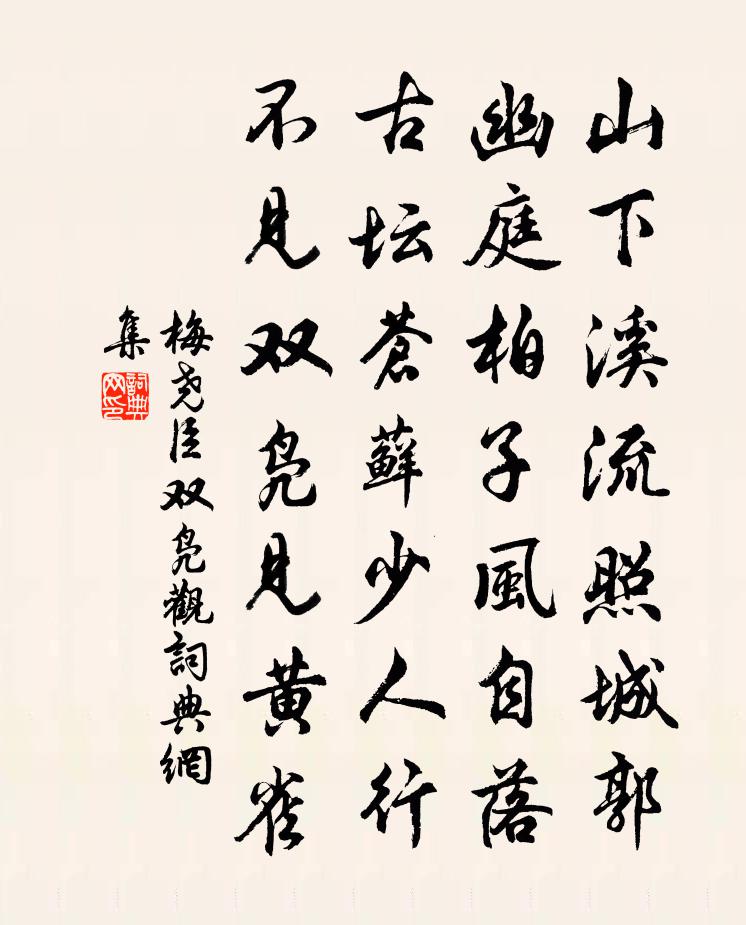 山下溪流照城郭
幽庭柏子風自落
古坛蒼蘚少人行
不见双凫见黄雀
梅尧臣双凫觀詞典網
集
詞典
网印